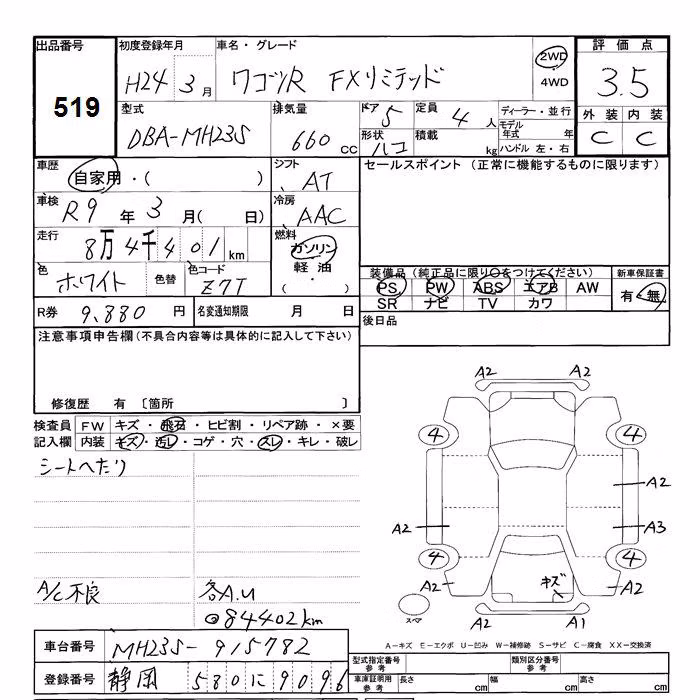 出品番号 初度登録年月 車名・グレード 評価点
519 H24 3月 ワゴンR FXリミテッド 2WD 4WD 3.5
型式 排気量 ドア 5 定員 4人 ディーラー・並行 外装 内装
DBA-MH23S 660cc 形状 ハコ 積載 kg モデル年式 年 C C
ハンドル 左・右
車歴 自家用・( ) シフト AT セールスポイント (正常に機能するものに限ります)
車検 R9年3月( 日) 冷房 AAC
走行 8万4千401km 燃料 ガソリン 軽油 ( ・ )
色 ホワイト 色替 色コード Z7T 装備品 (純正品に限り○をつけてください) 新車保証書
PS PW ABS エアB AW 有・無
SR ナビ TV カワ
R券 9,880円 名変通知期限 月 日 後日品
注意事項申告欄(不具合内容等は具体的に記入して下さい)
修復歴 有 〔箇所 〕
検査員 FW キズ・飛石・ヒビ割・リペア跡・×要
記入欄 内装 キズ・汚レ・コゲ・穴・スレ・キレ・破レ
シートヘたり
A/C不良 各A.U
◎84402km
A2 A2
4 4
A2
A2 A3
4 4
A2 キズ A2
スペア
A2 A1
A-キズ E-エクボ U-凹み W-補修跡 S-サビ C-腐食 XX-交換済
車台番号 MH23S-915782 型式指定番号 参考 類別区分番号 参考
登録番号 静岡 580 に 9096 車庫証明用 参考 長さ cm 幅 cm 高さ cm